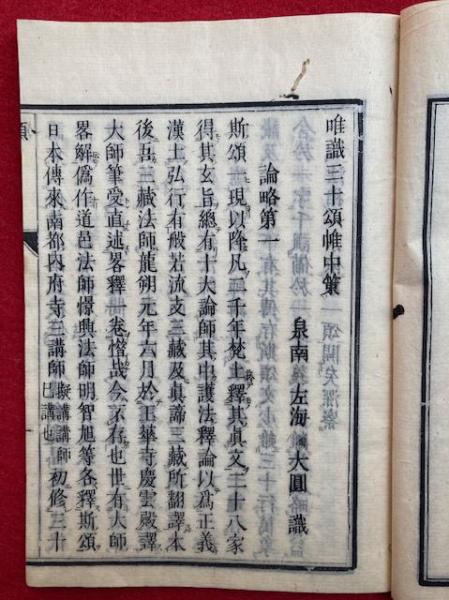 唯識三十頌帷中策
泉南 左海 大圓 識
論略第一
斯頌一現以降凡三千年梵土釋其眞文二十八家
得其玄旨總有十大論師其中護法釋論以爲正義
漢土弘行有般若流支三藏及眞諦三藏所翻譯本
後吾三藏法師龍朔元年六月於玉華寺慶雲殿譯
大師筆受直述畧釋一卷惜哉今不存也世有大師
畧解僞作道邑法師憬興法師明智旭等各釋斯頌
日本傳來南都內府寺三講師擬講講師已講也初修三十